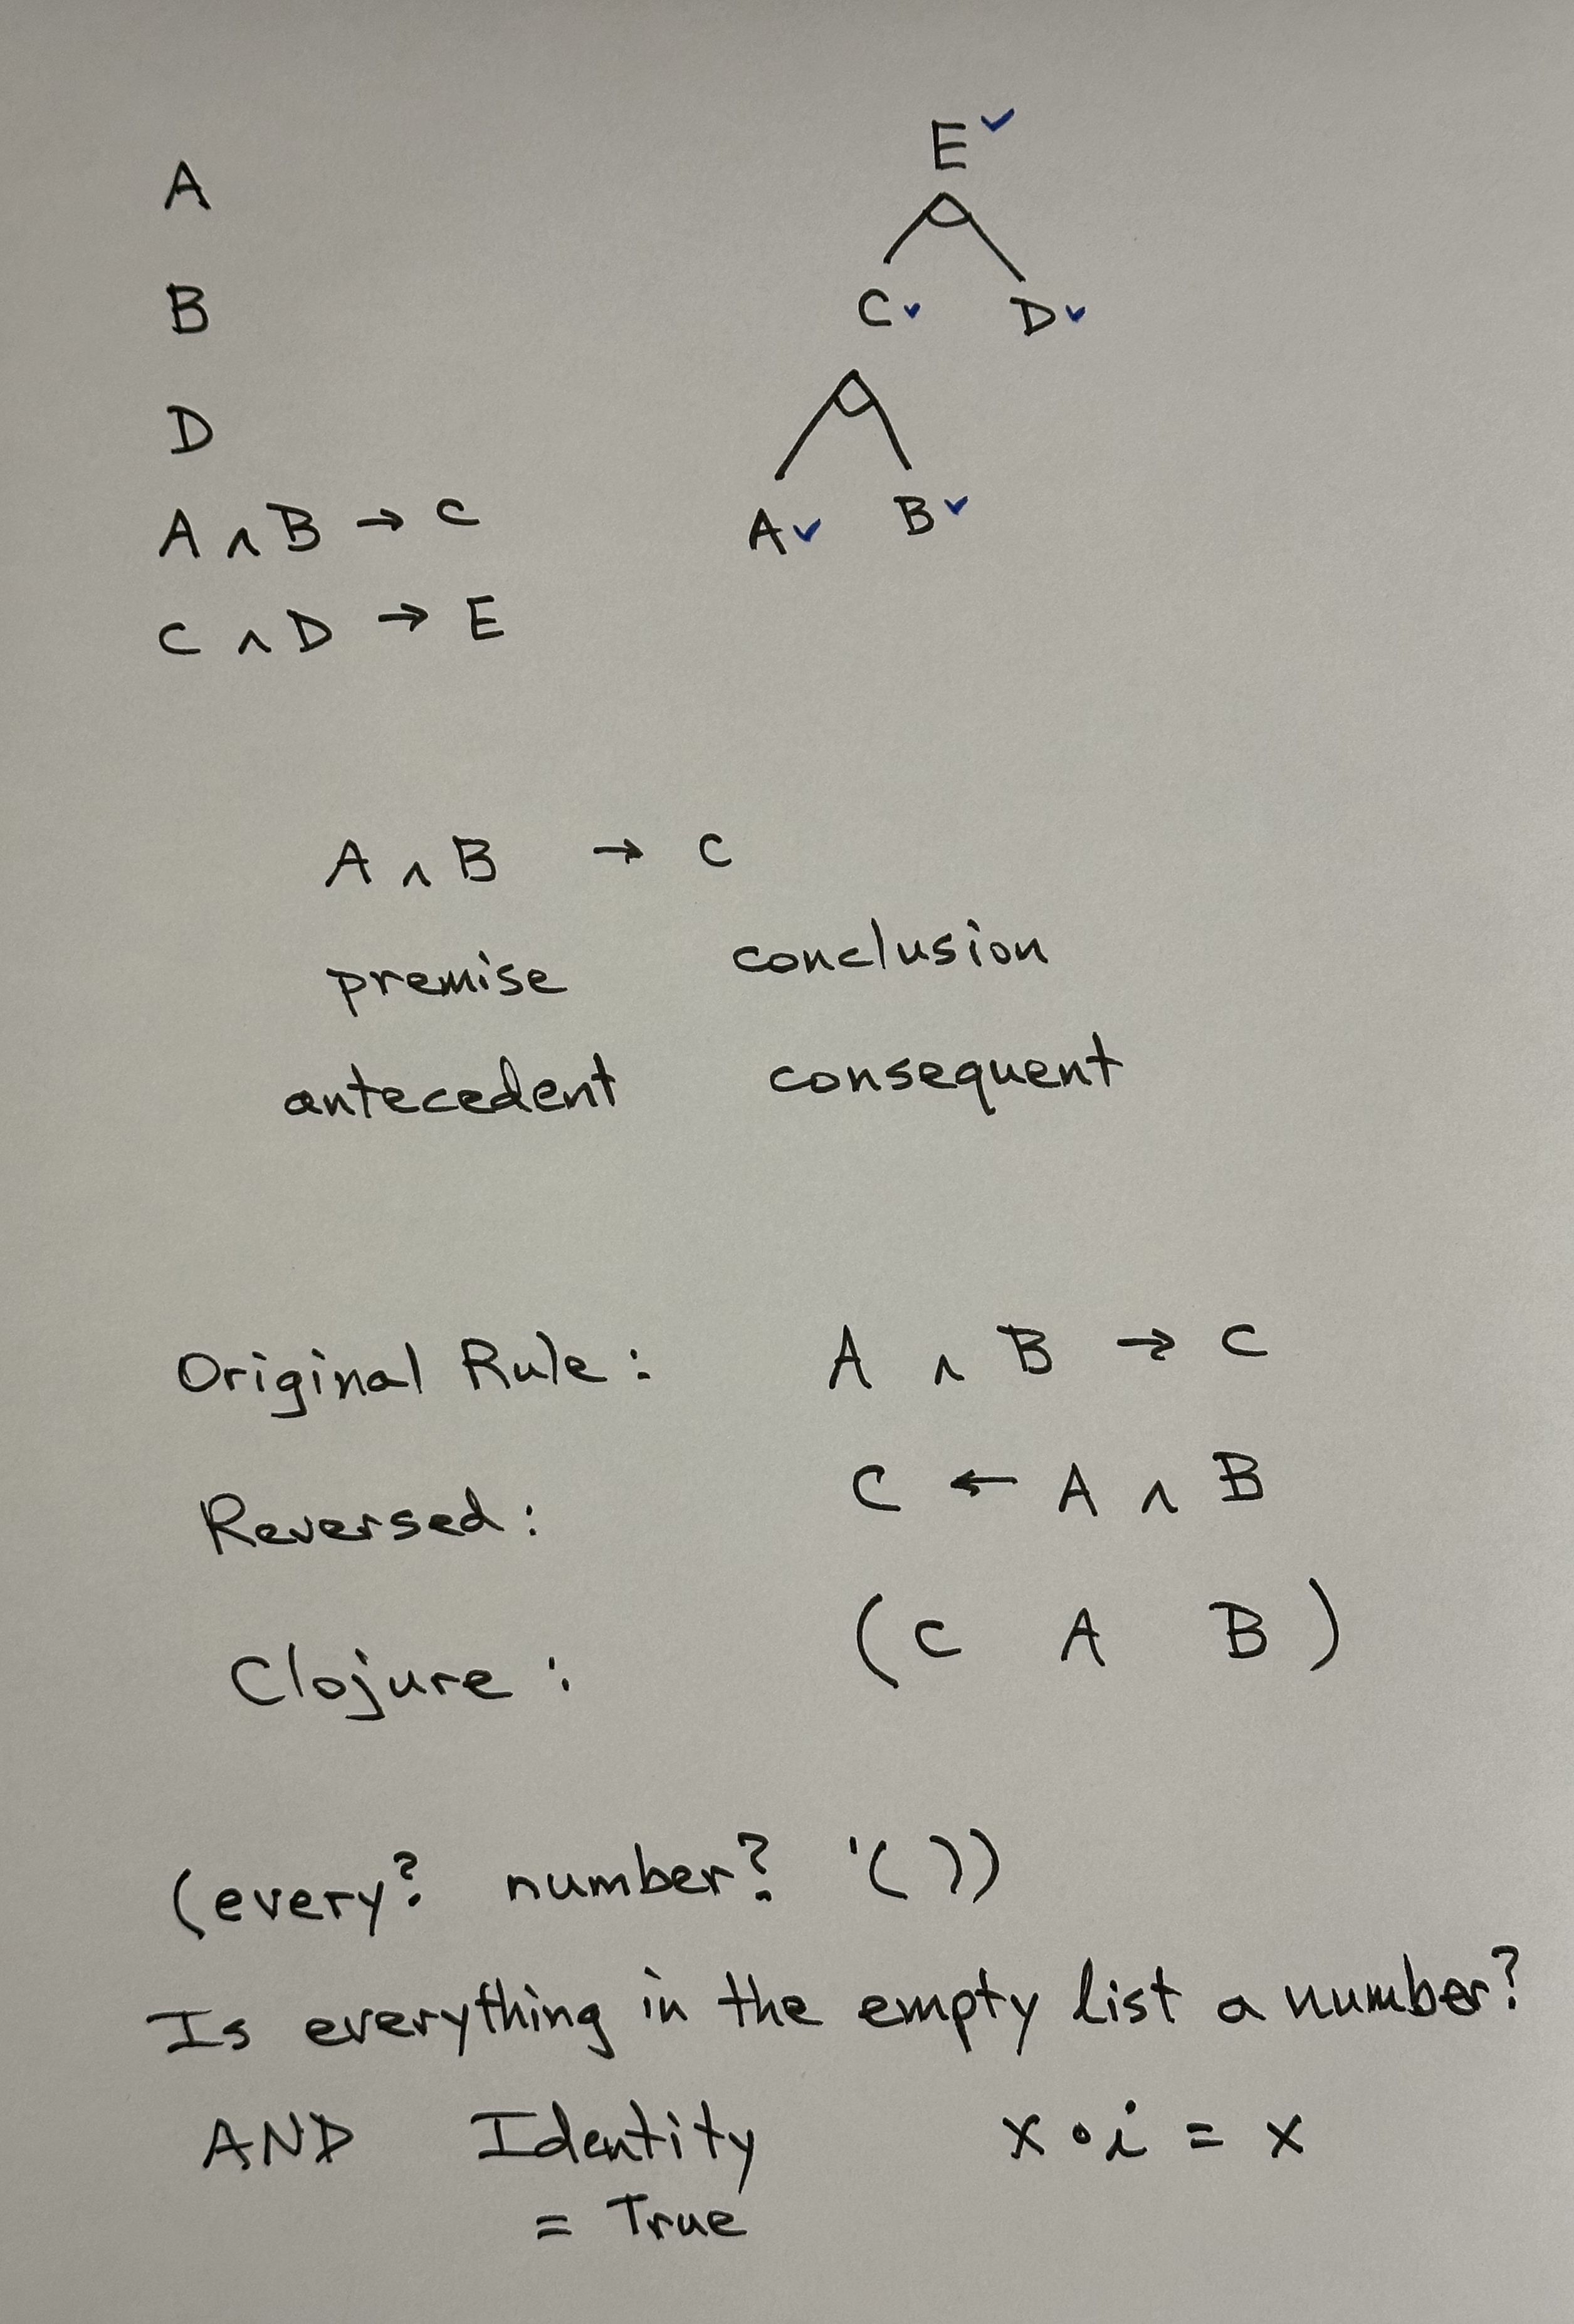 A
B
D
A ∧ B → C
C ∧ D → E
E ✓
C ✓ D ✓
A ✓ B ✓
A ∧ B → C
premise conclusion
antecedent consequent
Original Rule: A ∧ B → C
Reversed: C ← A ∧ B
Clojure: (C A B)
(every? number? '())
Is everything in the empty list a number?
AND Identity x • i = x
= True